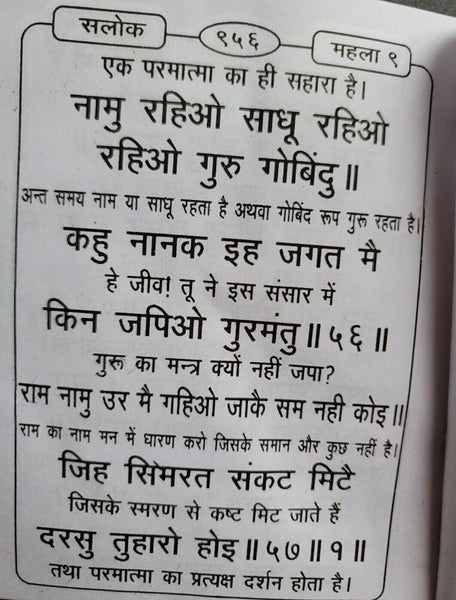 सलोक
९५६
महला ९
एक परमात्मा का ही सहारा है।
नामु रहिओ साधू रहिओ
रहिओ गुरु गोबिंदु॥
अन्त समय नाम या साधू रहता है अथवा गोबिंद रूप गुरू रहता है।
कहु नानक इह जगत मै
हे जीव! तू ने इस संसार में
किन जपिओ गुरमंतु॥५६॥
गुरू का मन्त्र क्यों नहीं जपा?
राम नामु उर मै गहिओ जाकै सम नही कोइ॥
राम का नाम मन में धारण करो जिसके समान और कुछ नहीं है।
जिह सिमरत संकट मिटै
जिसके स्मरण से कष्ट मिट जाते हैं
दरसु तुहारो होइ॥५७॥१॥
तथा परमात्मा का प्रत्यक्ष दर्शन होता है।